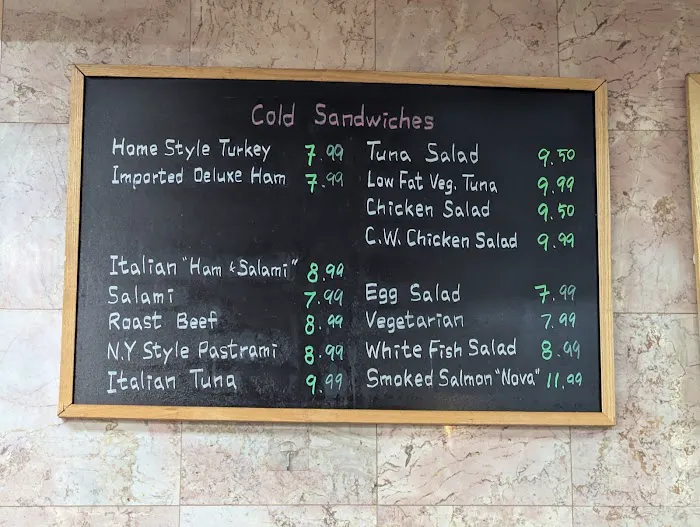 Cold Sandwiches
Home Style Turkey 7.99
Imported Deluxe Ham 7.99
Italian "Ham & Salami" 8.99
Salami 7.99
Roast Beef 8.99
N.Y Style Pastrami 8.99
Italian Tuna 9.99
Tuna Salad 9.50
Low Fat Veg. Tuna 9.99
Chicken Salad 9.50
C.W. Chicken Salad 9.99
Egg Salad 7.99
Vegetarian 7.99
White Fish Salad 8.99
Smoked Salmon "Nova" 11.99